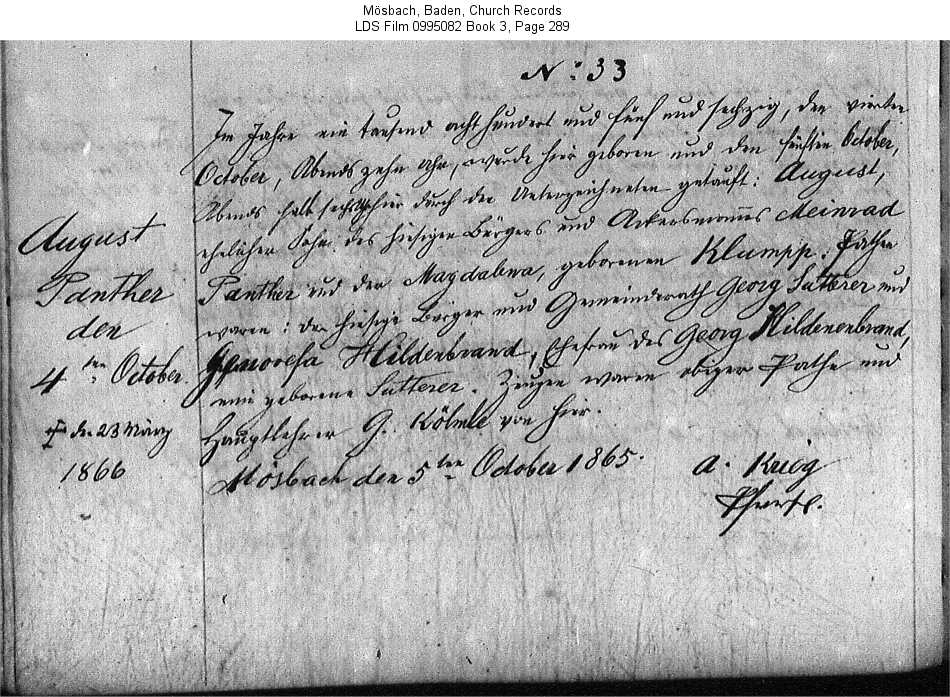 Mösbach, Baden, Church Records
LDS Film 0995082 Book 3, Page 289
No: 33
Im Jahre ein tausend acht hundert und fünf und sechzig, den vierten
October, Abends zehn Uhr, wurde hier geboren und den fünften October,
Abends halb sechs Uhr hier durch den Unterzeichneten getauft: August,
ehelicher Sohn des hiesigen Bürgers und Ackersmannes Meinrad
Panther und der Magdalena, geborenen Klumpp. Pathen
waren: der hiesige Bürger und Gemeinderath Georg Sutterer und
Genovefa Hildenbrand, Ehefrau des Georg Hildenbrand,
eine geborene Sutterer. Zeugen waren obiger Pathe und
Hauptlehrer G. Kölmle von hier.
Mösbach den 5ten October 1865.
A. Krieg
August
Panther
den
4ten October.
† den 23 März
1866